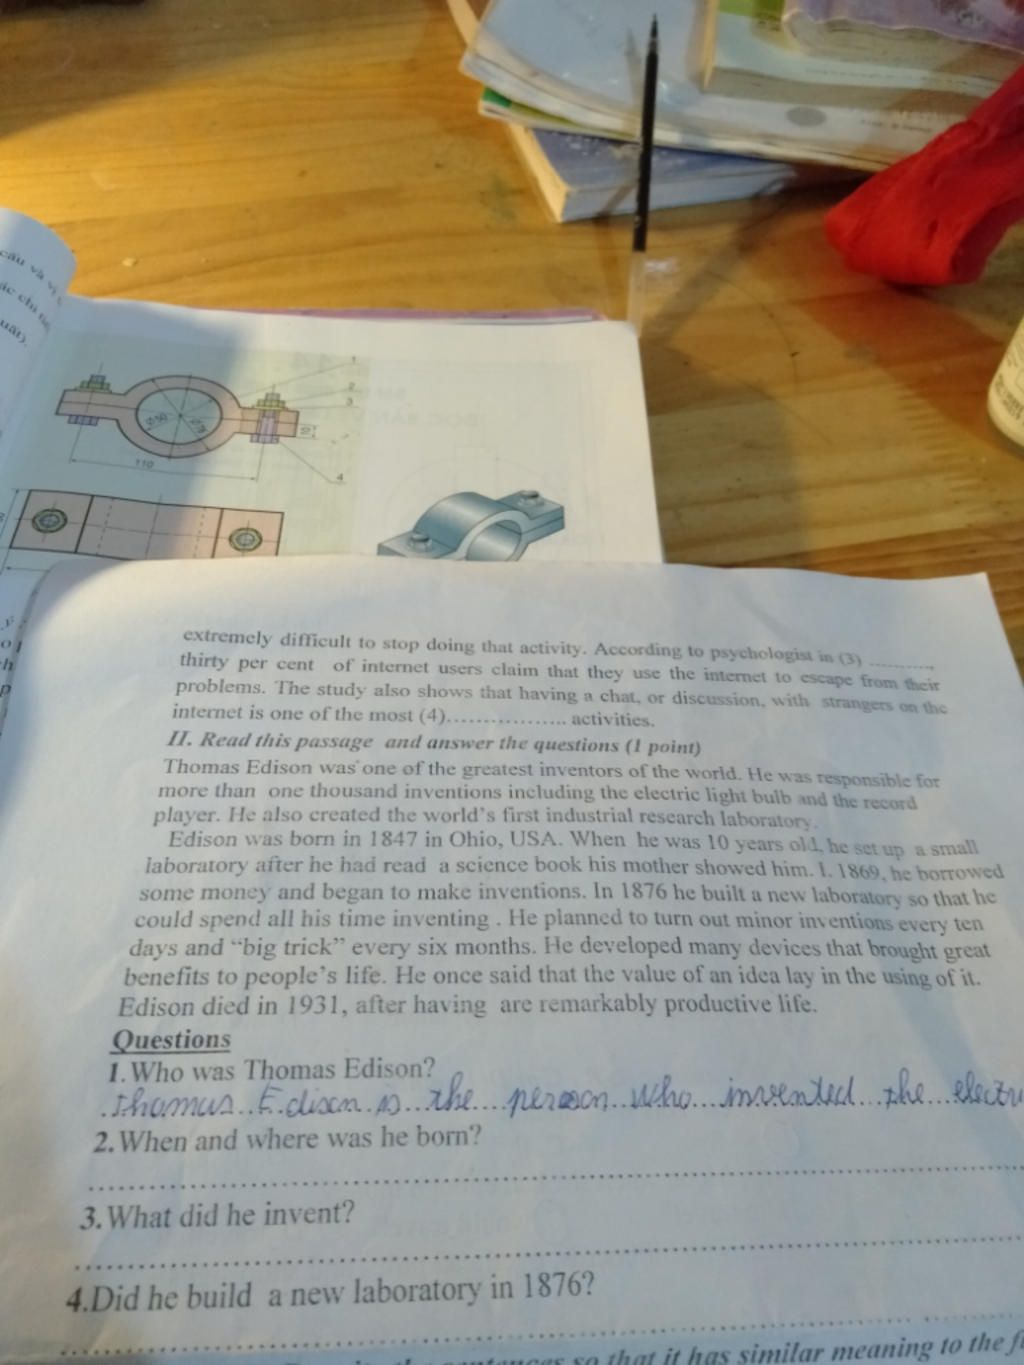 cấu và vị
ác chi
uất).
1
2
3
4
Ø50
110
10
extremely difficult to stop doing that activity. According to psychologist in (3) ...........,
thirty per cent of internet users claim that they use the internet to escape from their
problems. The study also shows that having a chat, or discussion, with strangers on the
internet is one of the most (4).................. activities.
II. Read this passage and answer the questions (1 point)
Thomas Edison was one of the greatest inventors of the world. He was responsible for
more than one thousand inventions including the electric light bulb and the record
player. He also created the world's first industrial research laboratory.
Edison was born in 1847 in Ohio, USA. When he was 10 years old, he set up a small
laboratory after he had read a science book his mother showed him. I. 1869, he borrowed
some money and began to make inventions. In 1876 he built a new laboratory so that he
could spend all his time inventing . He planned to turn out minor inventions every ten
days and "big trick" every six months. He developed many devices that brought great
benefits to people's life. He once said that the value of an idea lay in the using of it.
Edison died in 1931, after having are remarkably productive life.
Questions
1. Who was Thomas Edison?
Thomas Edison is the person who invented the electri
2. When and where was he born?
3. What did he invent?
4.Did he build a new laboratory in 1876?
sentences so that it has similar meaning to the f